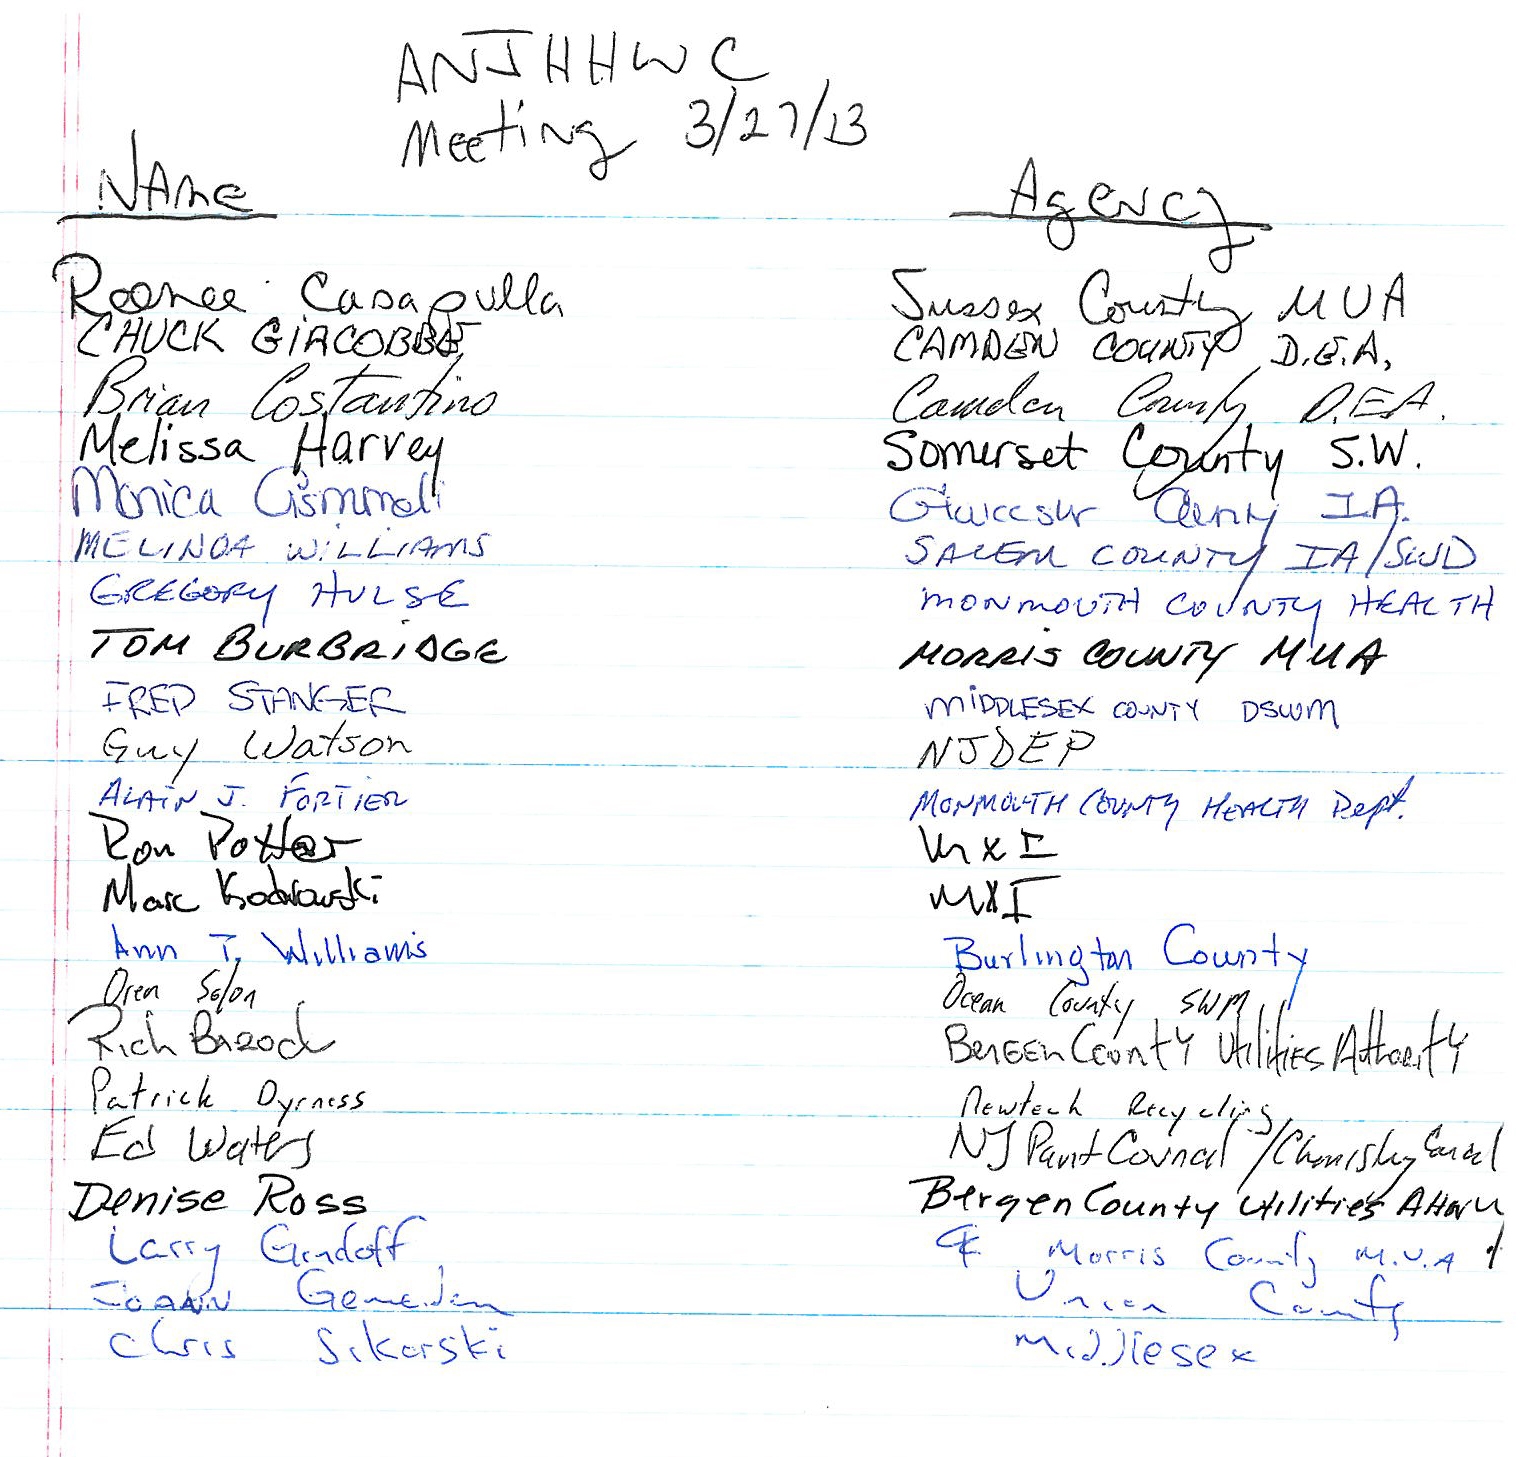 ANJHHWC
Meeting 3/27/13
Name Agency
Reenee Casapulla Sussex County MUA
CHUCK GIACOBBE CAMDEN COUNTY D.E.A.
Brian Costantino Camden County D.E.A.
Melissa Harvey Somerset County S.W.
Monica Gismondi Gloucester County IA.
MELINDA WILLIAMS SALEM COUNTY IA/SWD
GREGORY HULSE MONMOUTH COUNTY HEALTH
TOM BURBRIDGE MORRIS COUNTY MUA
FRED STANGER MIDDLESEX COUNTY DSWM
Guy Watson NJDEP
ALAIN J. FORTIER MONMOUTH COUNTY HEALTH Dept.
Ron Potter MXI
Marc Kodrowski MXI
Ann T. Williams Burlington County
Oren Solon Ocean County SWM
Rich Bazod BERGEN COUNTY Utilities Authority
Patrick Dyrness Newtech Recycling
Ed Waters NJ Paint Council / Chemistry Council
Denise Ross Bergen County Utilities
Larry Gindoff Morris County M.U.A
JOANN Gemenden Union County
Chris Sikorski Middlesex